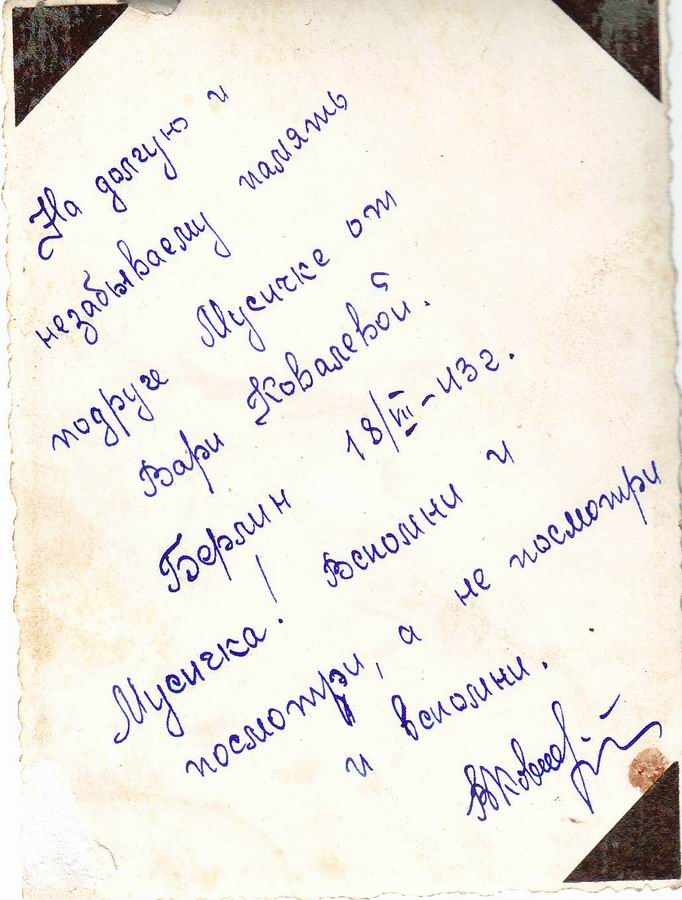 На долгую и
незабываему память
подруге Мусичке от
Вари Ковалевой.
Берлин 18/VIII-43г.
Мусичка! Вспомни и
посмотри, а не посмотри
и вспомни.
ВКовал